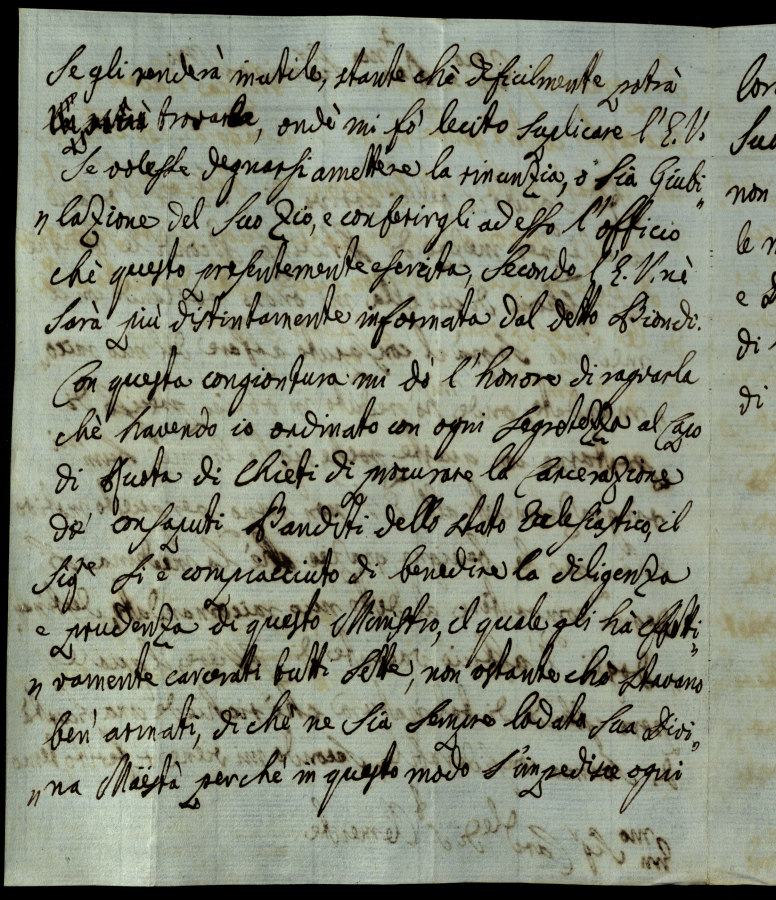 Se gli renderà inutile, stante chè dificilmente potrà
trovarla, ondè mi fó lecito suplicare l'E.V.
Se volesse degnarsi amettere la rinunzia, o sia Giubi
"lazione del Suo Zio, e conferirgli ad esso l'officio
chè questo presentemente esercita, Secondo l'E.V. nè
Sarà più distintamente informata dal detto Biondi.
Con questa congiontura mi dó l'honore di raguarla
chè havendo io ordinato con ogni Segretezza al Capo
di Ruota di Chieti di procurare la Carcerazione
dè consaputi Banditi dello stato Eclesiastico, il
Sigre Si è compiacciuto di benedire la diligenza
e prudenza di questo Ministro, il quale gli hà effetti"
"vamente carcerati tutti Sette, non ostante chè stavano
ben' armati, di chè ne Sia sempre lodata Sua Divi"
"na Maestà perchè in questo modo s'impedisce ogni
lor
Sua
non
le
e
di
di